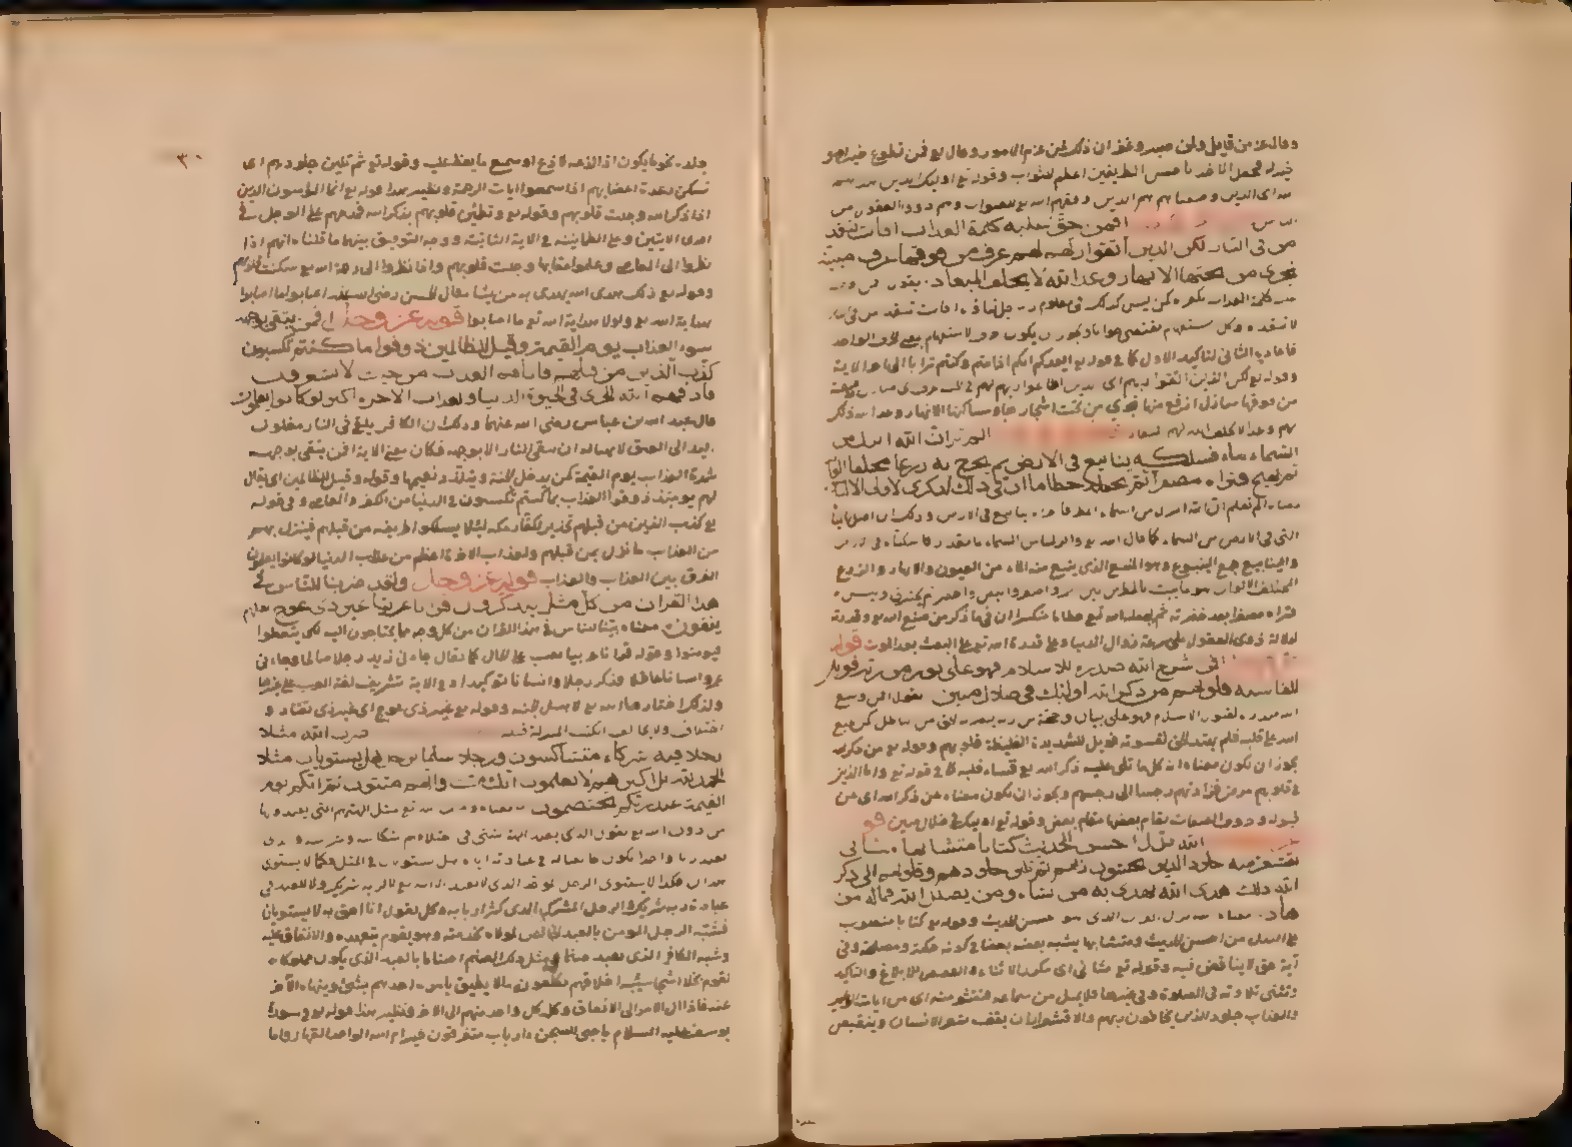 وقال عز من قايل ولمن صبر وغفر ان ذلك لمن عزم الامور وقال تع فمن تطوع خيرا فهو
خير له فجعل الاخذ باحسن الطريقين اعظم للثواب وقوله تع اولئك الذين هديهم
الله اى الذين وصفناهم هم الذين وفقهم الله تع للصواب وهم ذووا العقول من
الناس افمن حق عليه كلمة العذاب افانت تنقذ
من فى النار لكن الذين اتقوا ربهم لهم غرف من فوقها غرف مبنية
تجرى من تحتها الانهار وعد الله لا يخلف الميعاد يقول من
كلمة العذاب بكفره كمن ليس كذلك افانت تنقذ من فى النار
لا تنقذه وكل استفهام
فاعاد الثانى لتاكيد الاول كما فى قوله تع ايعدكم انكم اذا متم وكنتم ترابا الاية
وقوله تع لكن الذين اتقوا ربهم اى الذين اطاعوا ربهم لهم
من فوقها منازل ارفع منها تجرى من تحت اشجارها ومساكنها الانهار وعد الله ذلك
لهم وعدا لا يخلف الله الم تر ان الله انزل من
السماء ماء فسلكه ينابيع فى الارض ثم يخرج به زرعا مختلفا الوانه
ثم يهيج فتراه مصفرا ثم يجعله حطاما ان فى ذلك لذكرى لاولى الالباب
معناه الم تعلم ان الله انزل من السماء ينابيع فى الارض وذلك ان اصل المياه
التى فى الارض من السماء كما قال الله تع وانزلنا من السماء ماء بقدر فاسكناه فى الارض
والينابيع جمع الينبوع وهو الموضع الذى ينبع منه الماء من العيون والابار والزرع
المختلف الالوان هو ما ينبت بالمطر
فتراه مصفرا بعد خضرته ثم يجعله الله تع حطاما متكسرا ان فى ما ذكر من صنع الله تع وقدرته
لدلالة لذوى العقول على سرعة زوال الدنيا وعلى قدرة الله تع على البعث بعد الموت قوله
افمن شرح الله صدره للاسلام فهو على نور من ربه فويل
للقاسية قلوبهم من ذكر الله اولئك فى ضلال مبين يقول افمن وسع
الله صدره لقبول الاسلام فهو على بيان وحجة من ربه يبصر به الحق من الباطل كمن طبع
الله على قلبه فلم يهتد للحق لقسوته فويل للشديدة الغليظة قلوبهم وقوله تع من ذكر الله
يجوز ان يكون معناه ان كل ما تلى عليه ذكر الله تع قسا قلبه كما فى قوله تع واما الذين
فى قلوبهم مرض فزادتهم رجسا الى رجسهم ويجوز ان يكون معناه عن ذكر الله اى عن
قبوله وحروف الصفات تقام بعضها مقام بعض وقوله تع اولئك فى ضلال مبين قو
الله نزل احسن الحديث كتابا متشابها مثانى
تقشعر منه جلود الذين يخشون ربهم ثم تلين جلودهم وقلوبهم الى ذكر
الله ذلك هدى الله يهدى به من يشاء ومن يضلل الله فماله من
هاد معناه الله نزل القران الذى هو احسن الحديث وقوله تع كتابا منصوب
على البدل من احسن الحديث ومتشابها يشبه بعضه بعضا فى كونه حكمة ومصلحة وفى
انه حق لا يتناقض فيه وقوله تع مثانى اى مكرر الانباء والقصص للابلاغ والتاكيد
وتثنى تلاوته فى الصلوة وفى غيرها فلا يمل من سماعه تقشعر منه اى من ايات الوعيد
والعذاب جلود الذين يخافون ربهم والاقشعرار ان يقف شعر الانسان وينقبض
جلده نحو ما يكون اذا لذعه لاذع او سمع ما يغظ عليه وقوله تع ثم تلين جلودهم اى
تسكن رعدة اعضايهم اذا سمعوا ايات الرحمة ونظير هذا قوله تع انما المؤمنون الذين
اذا ذكر الله وجلت قلوبهم وقوله تع وتطمئن قلوبهم بذكر الله فمدحهم على الوجل فى
احدى الايتين وعلى الطمانينة فى الاية الثانية ووجه التوفيق بينهما ما قلنا انهم اذا
نظروا الى المعاصى وعلموا عقابها وجلت قلوبهم واذا نظروا الى رحمة الله تع سكنت قلوبهم
وقوله تع ذلك هدى الله يهدى به من يشاء قال الحسن رضى الله عنه اصابوا ما اصابوا
بهداية الله تع ولولا هداية الله تع ما اصابوا قوله عز وجل افمن يتقى بوجهه
سوء العذاب يوم القيمة وقيل للظالمين ذوقوا ما كنتم تكسبون
كذب الذين من قبلهم فاتاهم العذاب من حيث لا يشعرون
فاذاقهم الله الخزى فى الحيوة الدنيا ولعذاب الاخرة اكبر لو كانوا يعلمون
قال عبد الله بن عباس رضى الله عنهما وذلك ان الكافر يلقى فى النار مغلولا
يده الى العنق لا يتهياله ان يتقى النار الا بوجهه فكان معنى الاية افمن يتقى بوجهه
شدة العذاب يوم القيمة كمن يدخل الجنة ويتلذذ بنعيمها وقوله وقيل للظالمين اى يقال
لهم يومئذ ذوقوا العذاب بما كنتم تكسبون فى الدنيا من الكفر والمعاصى وفى قوله
تع كذب الذين من قبلهم تحذير لكفار مكة ليلا يسلكوا طريقة من قبلهم فينزل بهم
من العذاب ما نزل بمن قبلهم ولعذاب الاخرة اعظم من عذاب الدنيا لو كانوا يعلمون
الفرق بين العذاب والعذاب قوله عز وجل ولقد ضربنا للناس فى
هذا القران من كل مثل لعلهم يتذكرون قرانا عربيا غير ذى عوج لعلهم
يتقون معناه بينا للناس فى هذا القران من كل وجه مما يحتاجون اليه لكى يتعظوا
فيومنوا وقوله قرانا عربيا نصب على الحال كما تقال جاءنى زيد رجلا صالحا وجاءنى
عمرو انسانا عاقلا فذكر رجلا وانسانا توكيدا وفى الاية تشريف لغة العرب على غيرها
ولذلك اختارها الله تع لاهل الجنة وقوله تع غير ذى عوج اى غير ذى تضاد و
اختلاف ولا يخالف الكتب المنزلة قبله ضرب الله مثلا
رجلا فيه شركاء متشاكسون ورجلا سلما لرجل هل يستويان مثلا
الحمد لله بل اكثرهم لا يعلمون انك ميت وانهم ميتون ثم انكم يوم
القيمة عند ربكم تختصمون معناه وصف الله تع مثل الهتهم التى يعبدونها
من دون الله تع يقول الذى يعبد الهة شتى فى اخلاقهم شكاسة وشراسة والذى
يعبد ربا واحدا يكون خالصا له فى عبادته اياه هل يستويان فى المثل فكما لا يستوى
هذان فكذا لا يستوى الرجل الموحد الذى لا يعبد الا الله تع لا لربه شريك ولا للعبد فى
عبادة ربه شريك والرجل المشرك الذى كثر اربابه وكل يقول انا احق به لا يستويان
فشبه الرجل المومن بالعبد الخالص لمولاه يخدمته وهو يقوم بتعهده والانفاق عليه
وشبه الكافر الذى يعبد صنما ومثل ذلك الصنم اصناما بالعبد الذى يكون مملوكا
لقوم بخلاء اشحاء سيئة اخلاقهم يكلفونه ما لا يطيق يامره احدهم بشئ وينهاه الآخر
عنه فاذا آل الامر الى الانفاق وكل كل واحد منهم الى الاخر ونظير هذا قوله تع فى سورة
يوسف عليه السلام يا صاحبى السجن ءارباب متفرقون خير ام الله الواحد القهار واما
٣٠